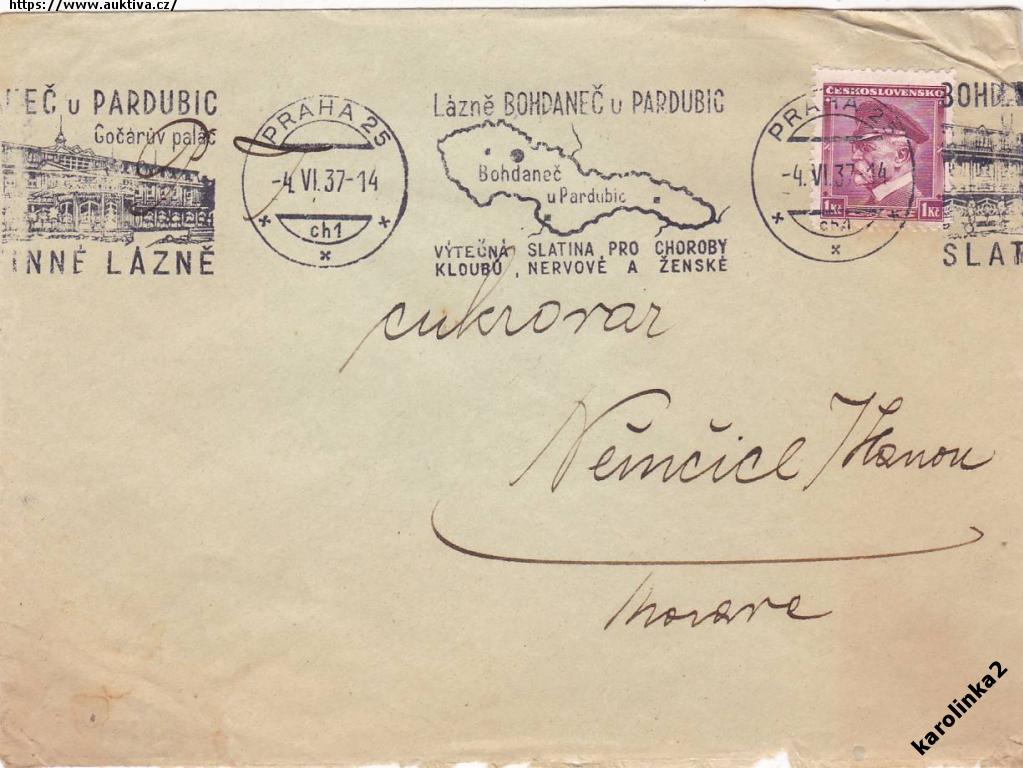 https://www.auktiva.cz/
NEČ u PARDUBIC
Gočárův palác
INNÉ LÁZNĚ
PRAHA 25
-4.VI.37-14
ch1
Lázně BOHDANEČ u PARDUBIC
Bohdaneč
u Pardubic
VÝTEČNÁ SLATINA PRO CHOROBY
KLOUBŮ, NERVOVÉ A ŽENSKÉ
PRAHA 25
-4.VI.37-14
ch1
ČESKOSLOVENSKO
1Kč 1Kč
BOHDA
SLAT
cukrovar
Němčice / Hanou
Morava
karolinka2